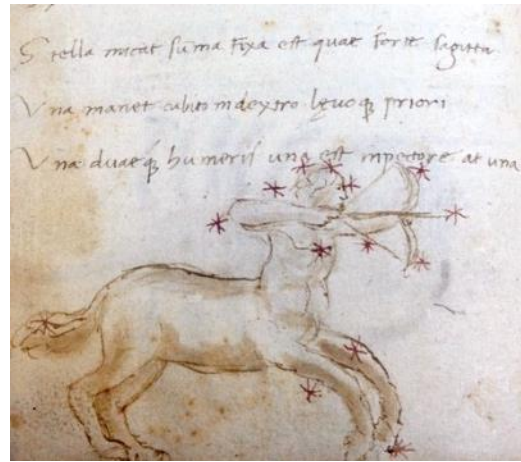 Stella micat suma fixa est quae forte sagitta
Vna manet cubito indextro lęuoq; priori
Vna duaeq; humeris una est inpectore at una